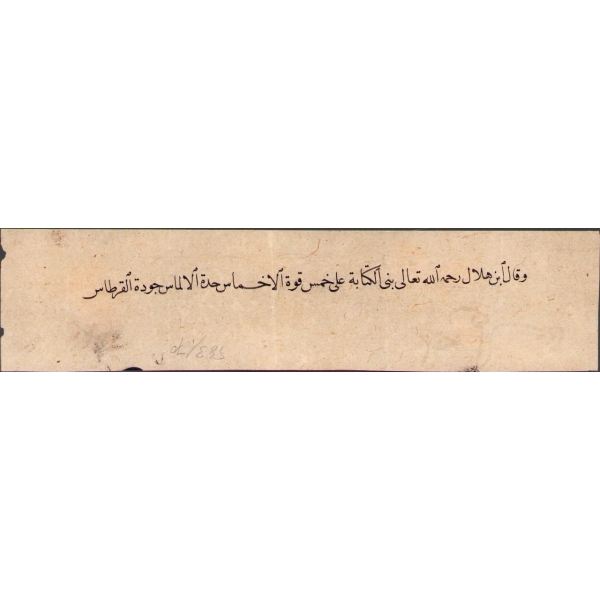 وقال ابن هلال رحمه الله تعالى بنى الكتابة على خمس قوة الاخماس حدة الالماس جودة القرطاس